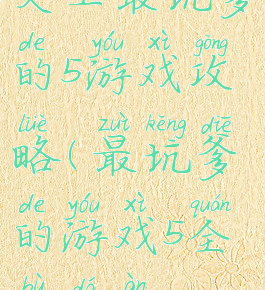 史上最坑爹
de yóu xì gōng
的5游戏攻
lüè zuì kēng diē
略(最坑爹
de yóu xì quán
的游戏5全
bù dá àn